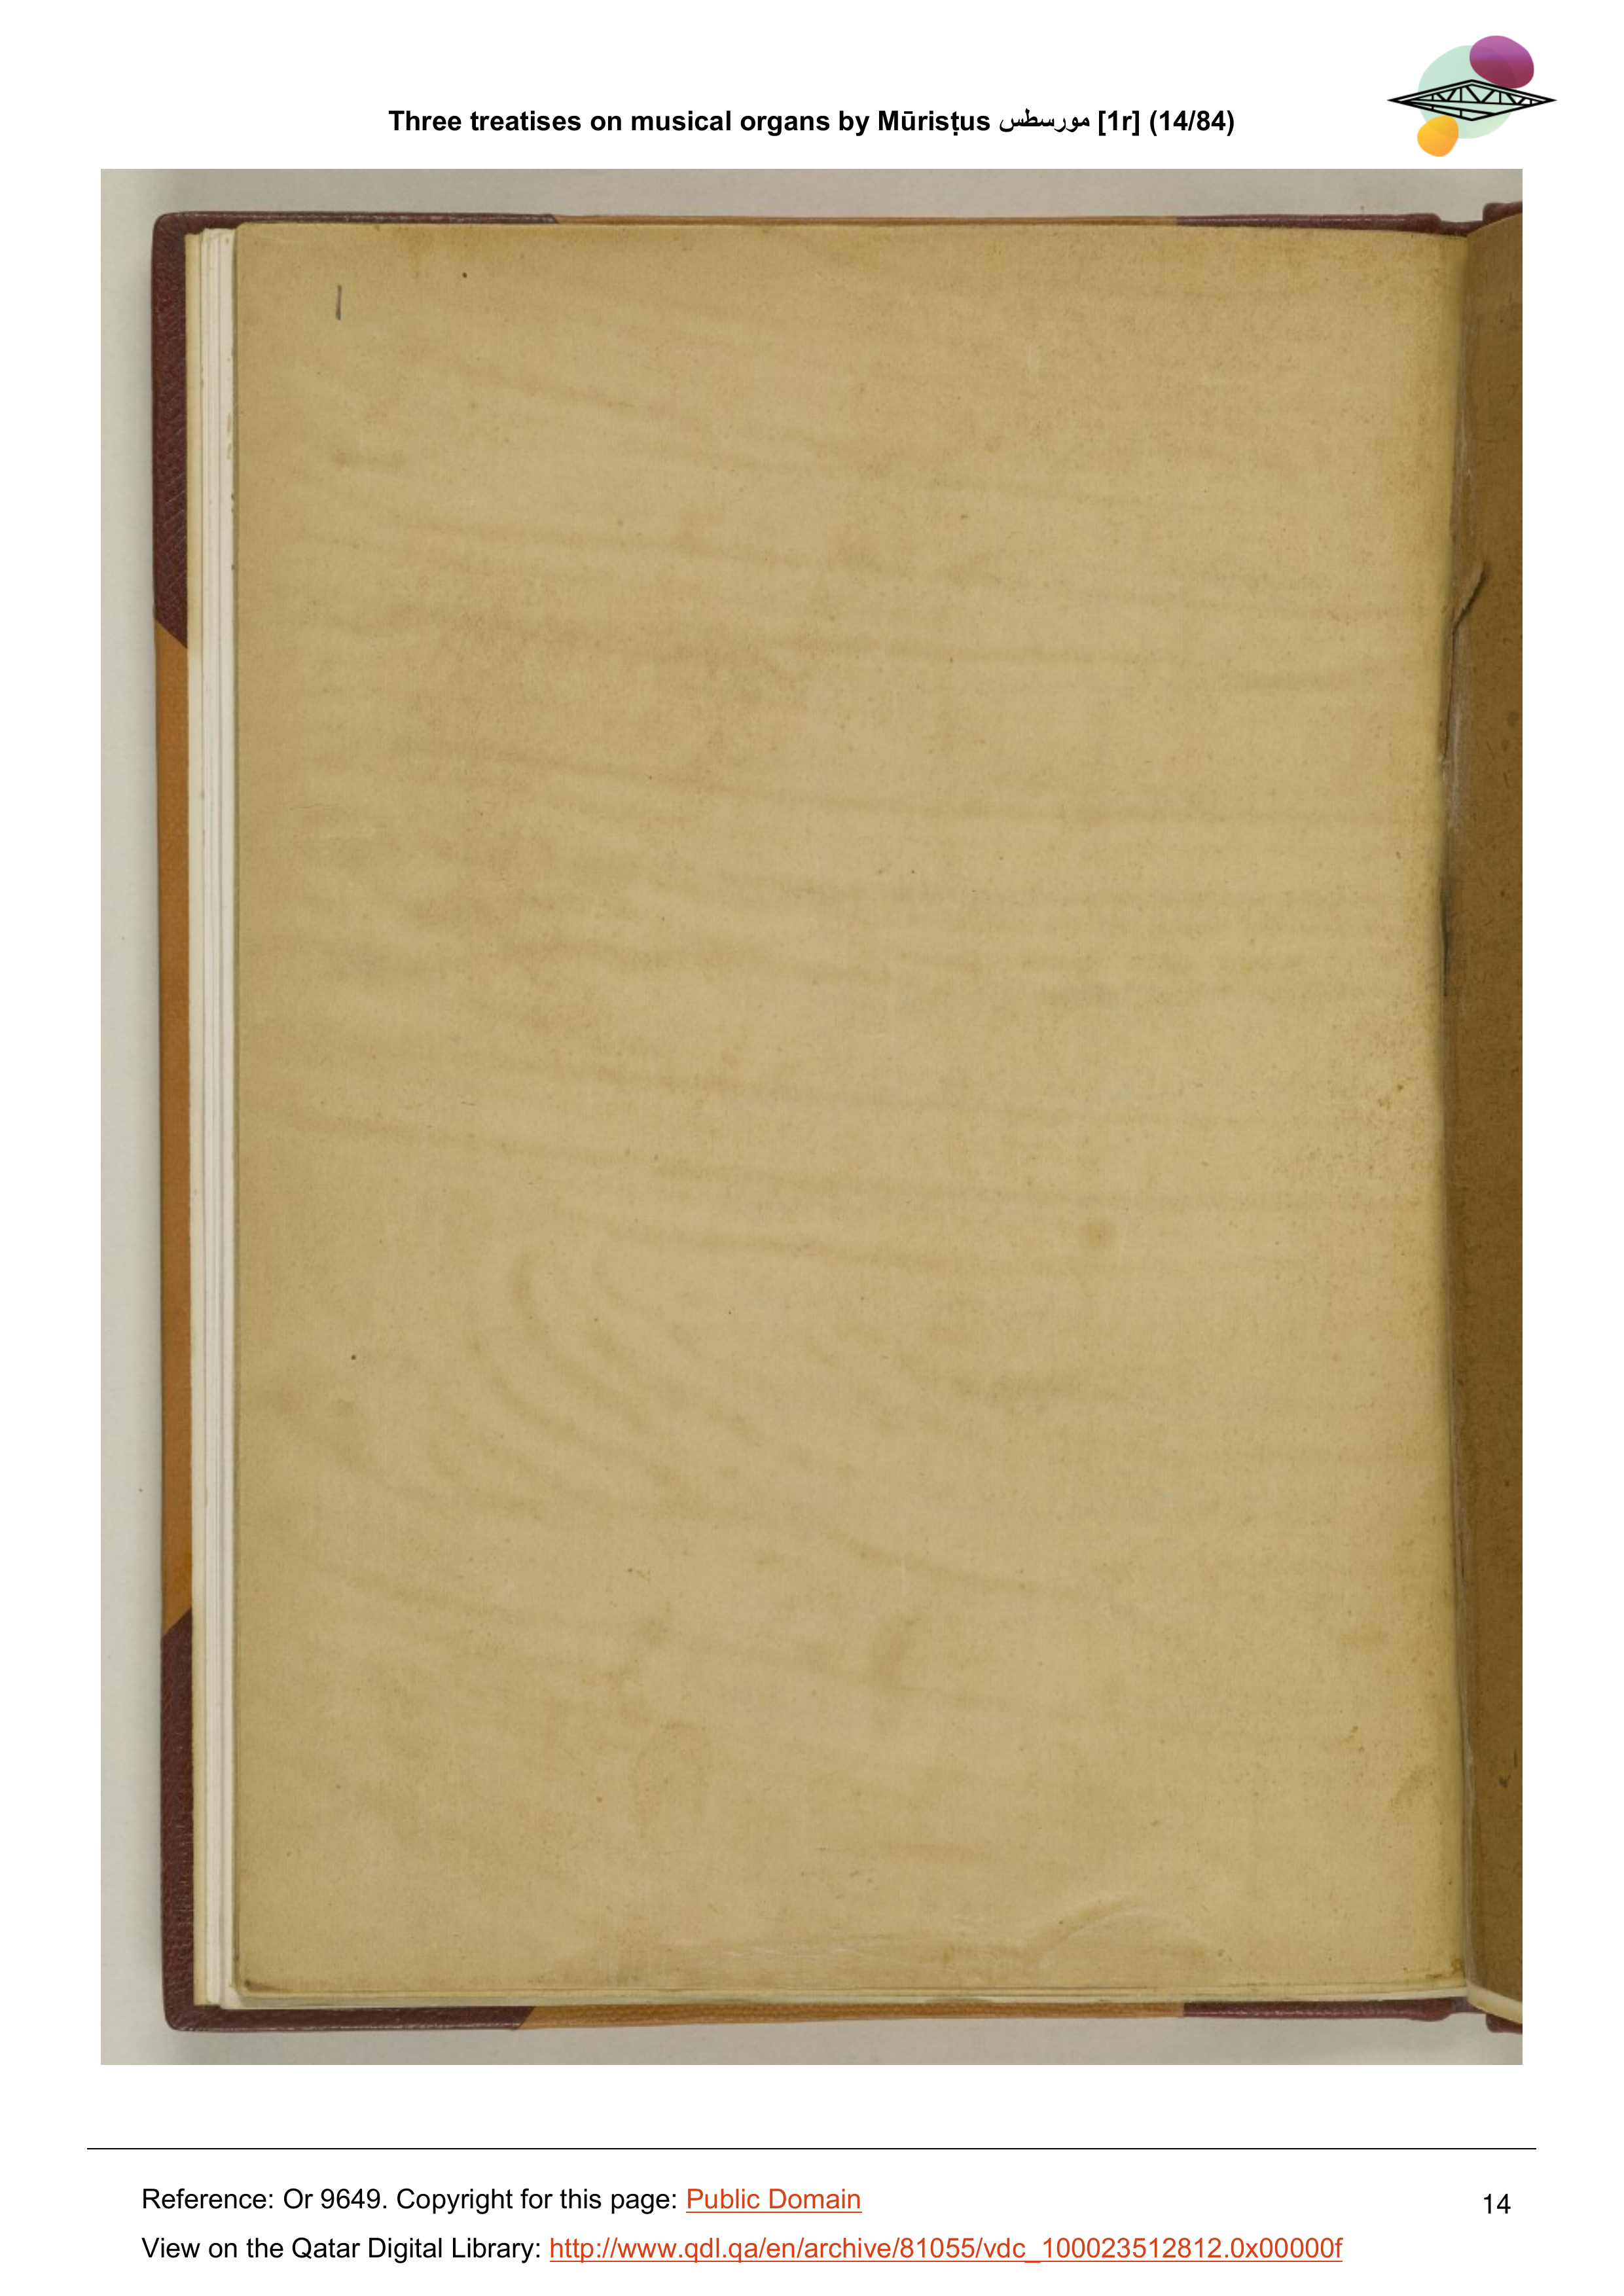 Three treatises on musical organs by Mūrisṭus مورسطس [1r] (14/84)
1
Reference: Or 9649. Copyright for this page: Public Domain
14
View on the Qatar Digital Library: http://www.qdl.qa/en/archive/81055/vdc_100023512812.0x00000f